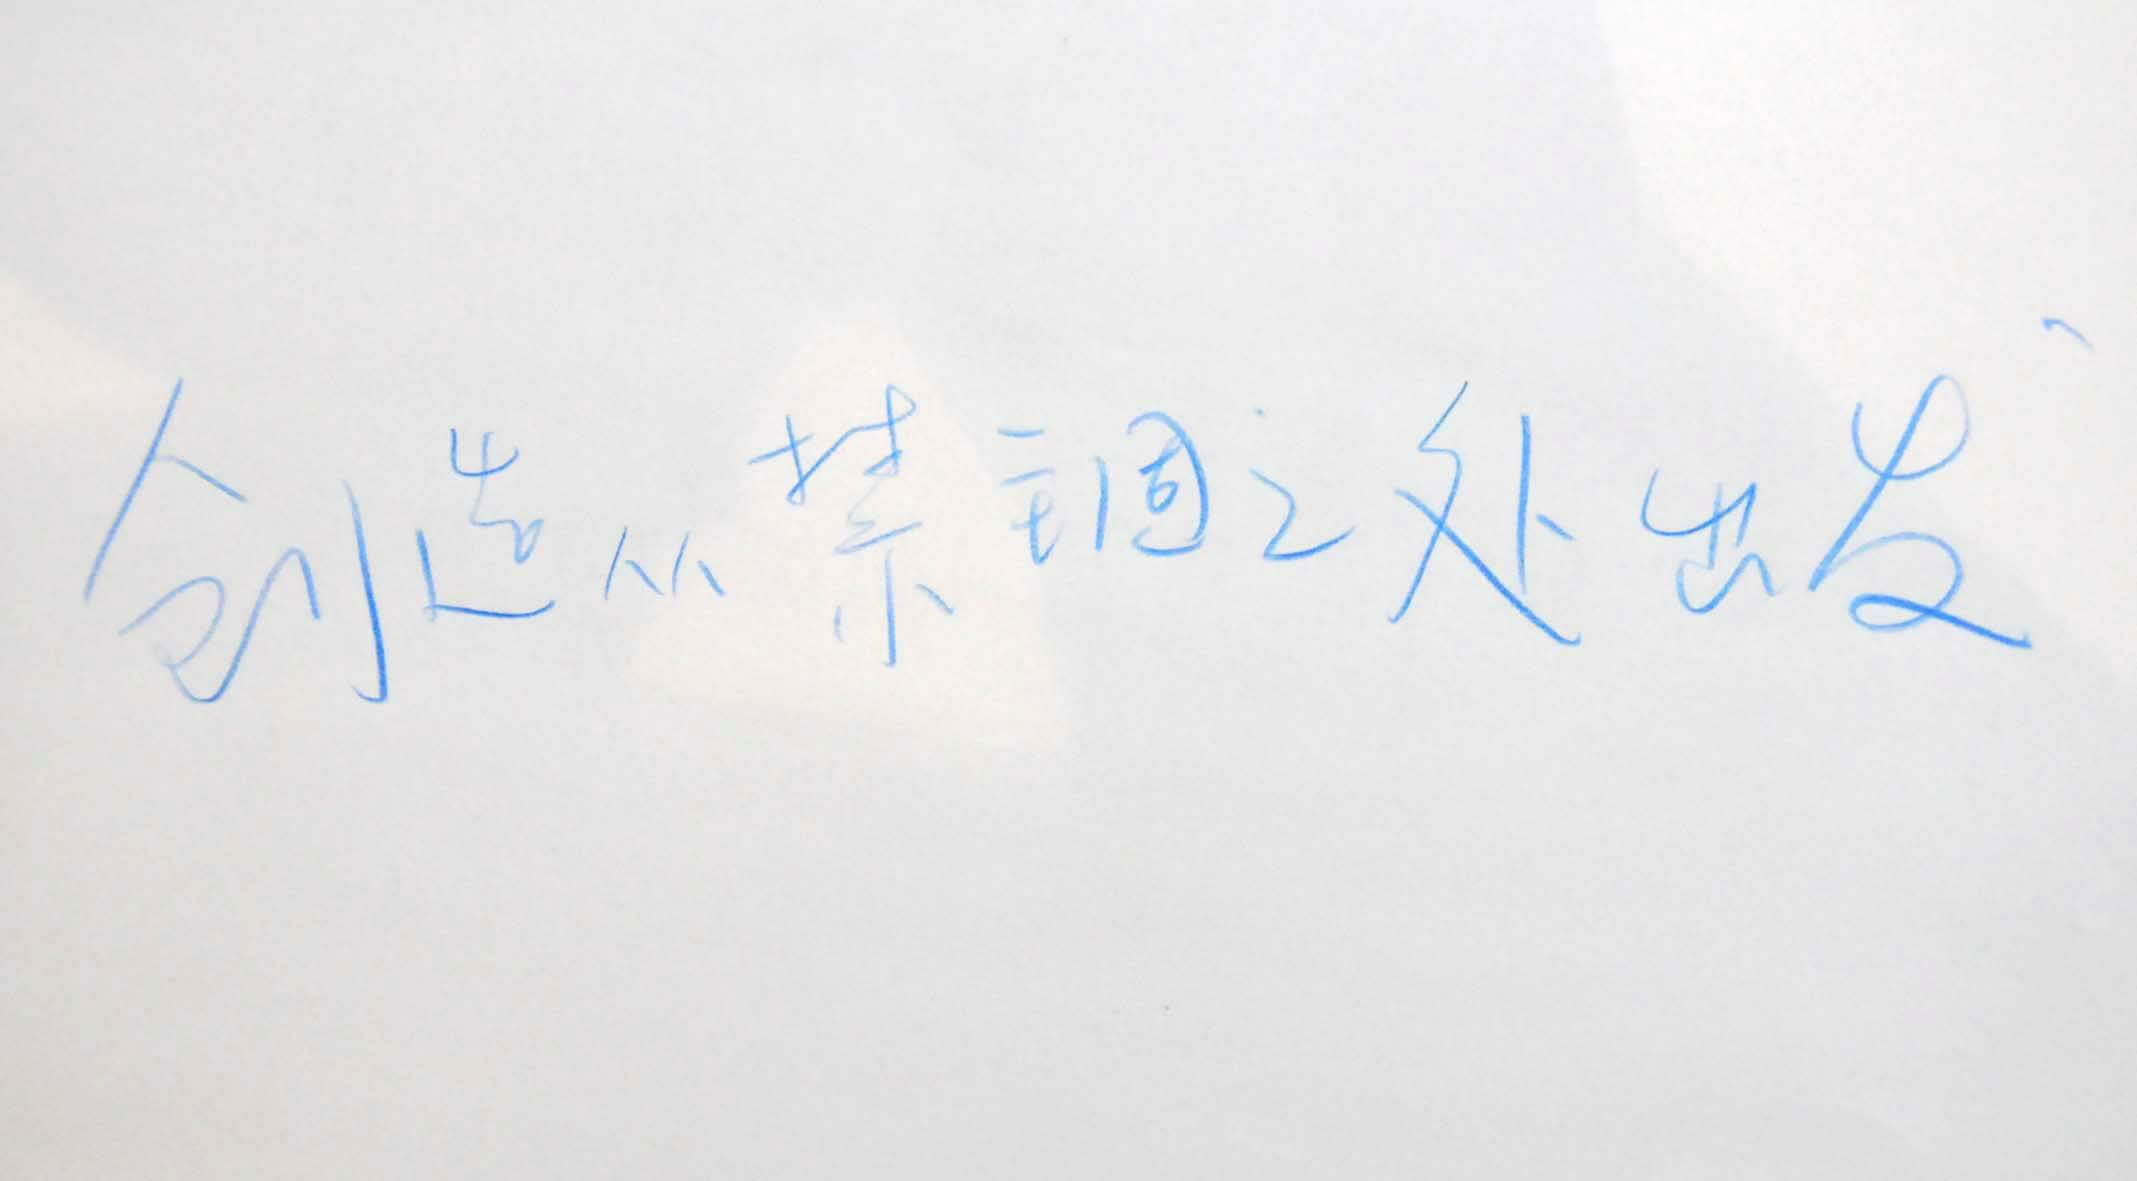 创造从禁錮之处出发